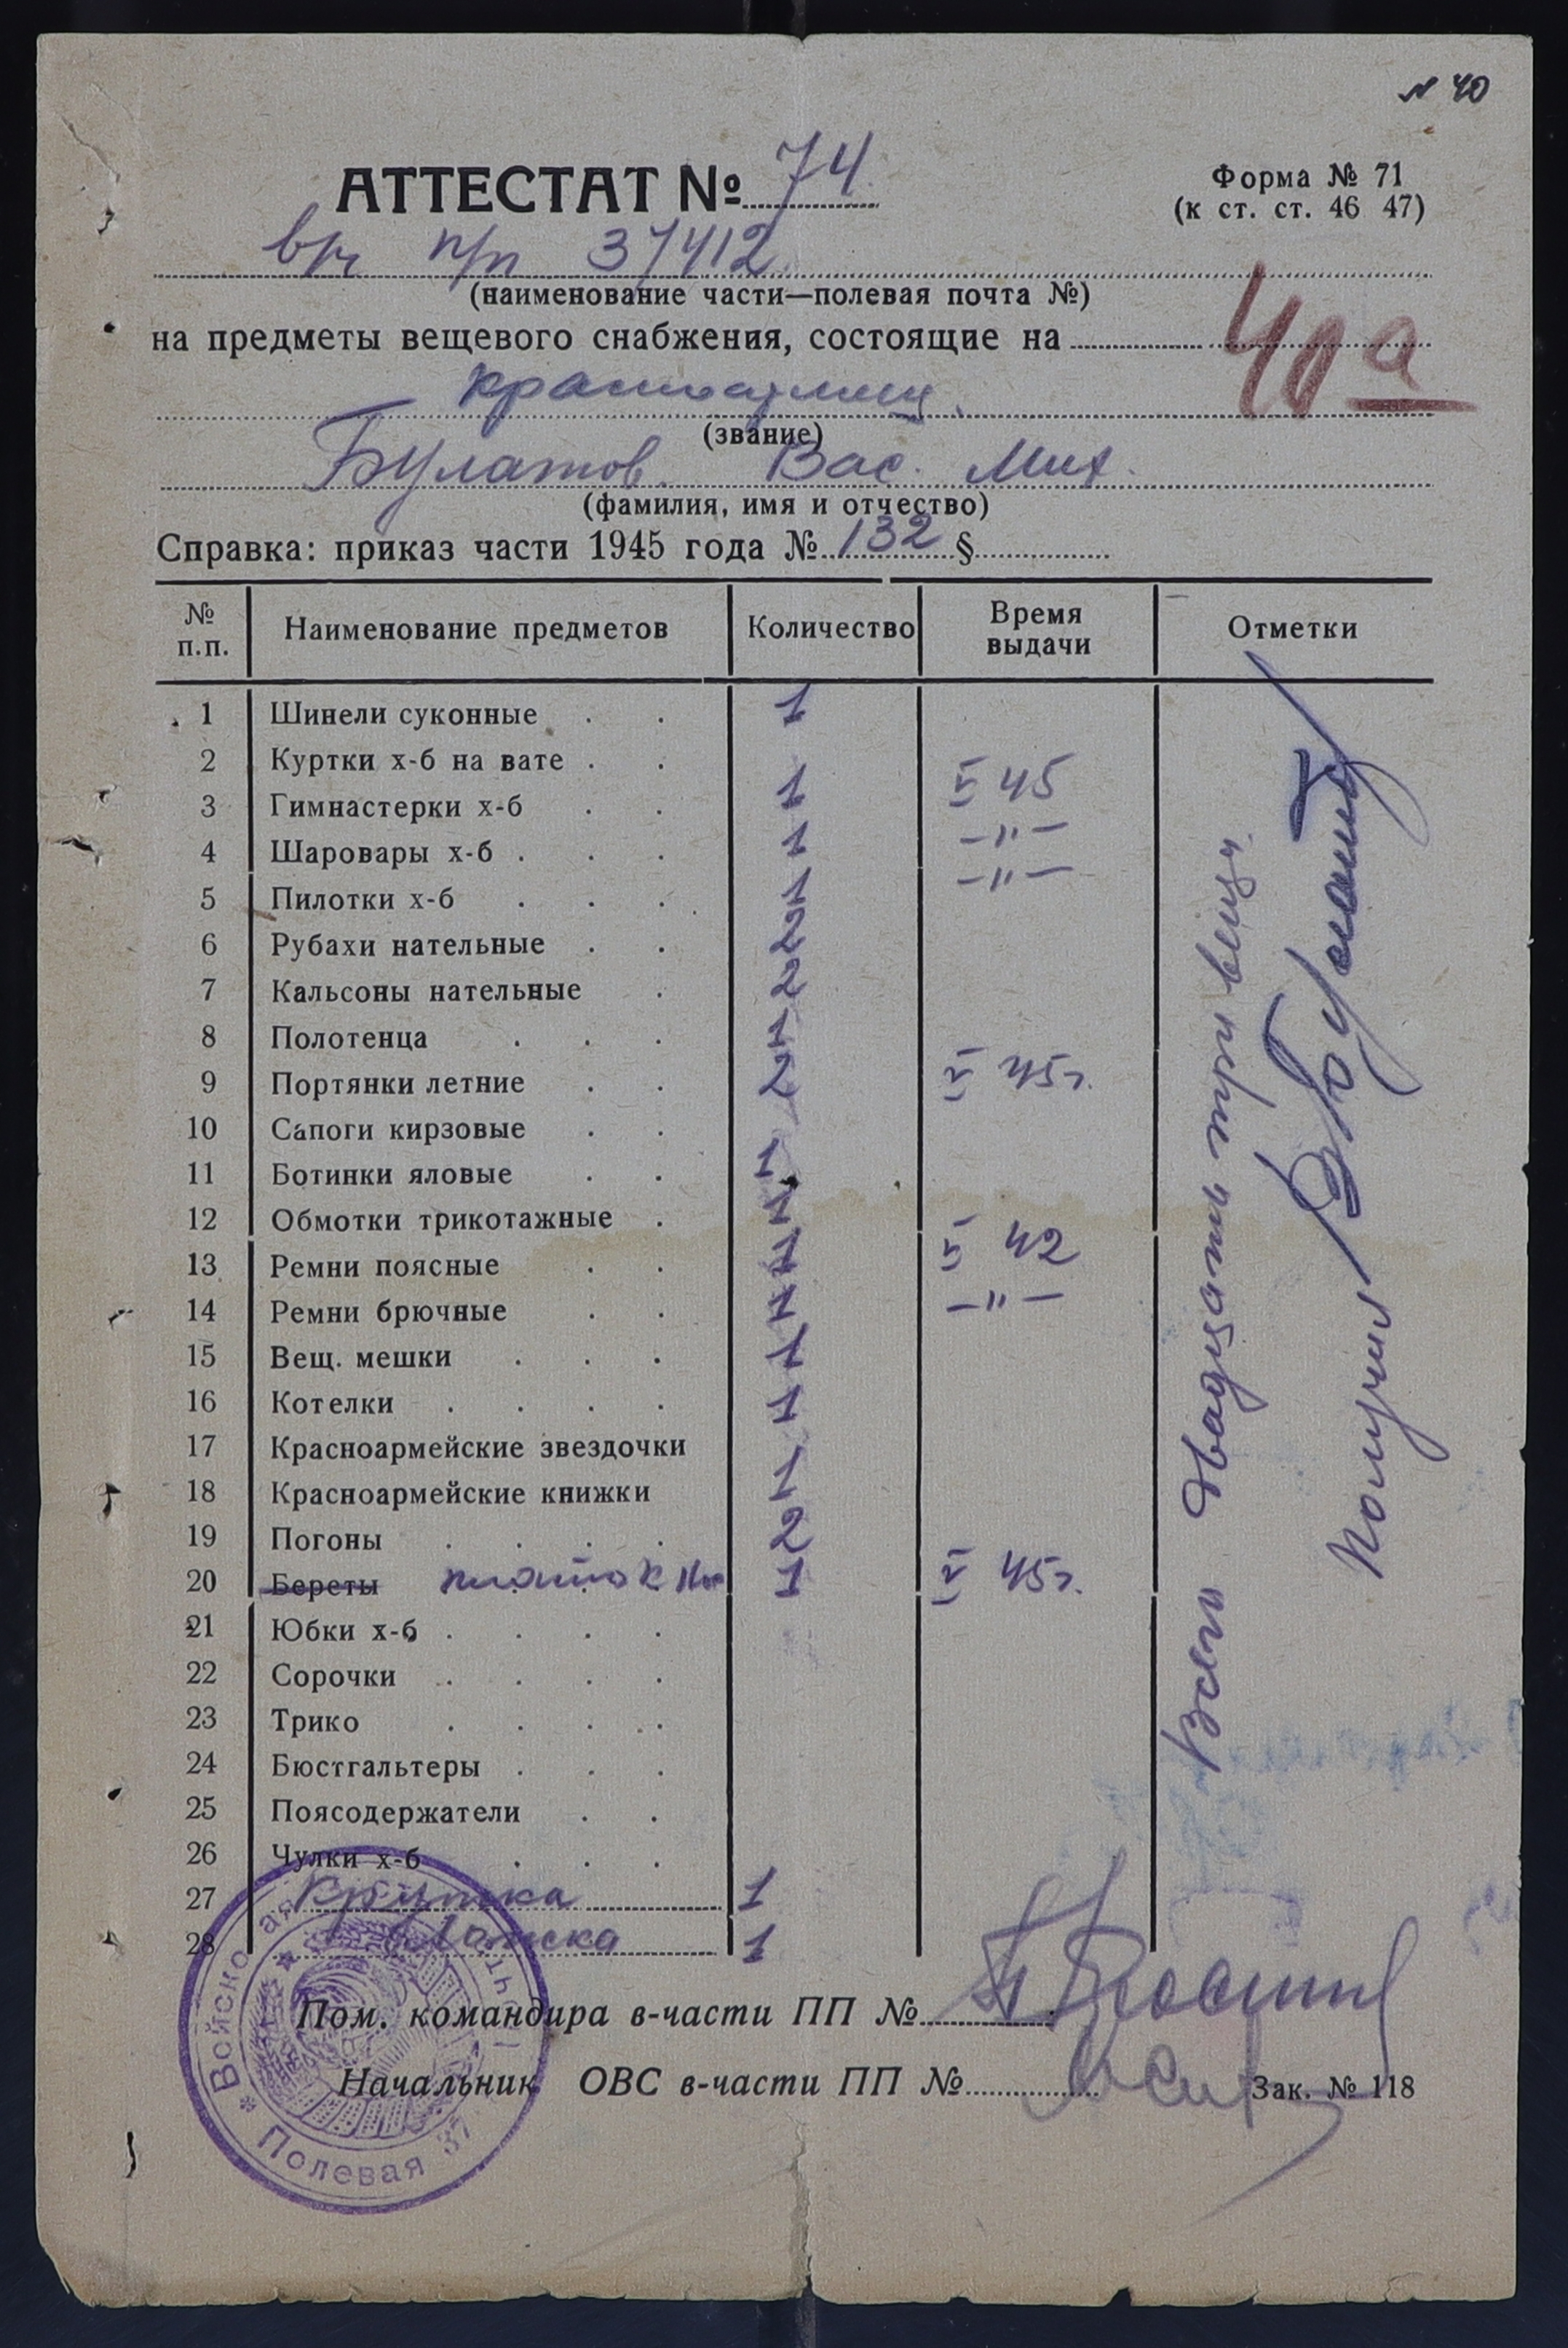 № 40
АТТЕСТАТ № 74
Форма № 71
(к ст. ст. 46 47)
в/ч п/п 37412
(наименование части—полевая почта №)
на предметы вещевого снабжения, состоящие на
40а
красноармеец
(звание)
Булатов Вас. Мих.
(фамилия, имя и отчество)
Справка: приказ части 1945 года № 132 §
№ п.п. Наименование предметов Количество Время выдачи Отметки
1 Шинели суконные 1
2 Куртки х-б на вате
3 Гимнастерки х-б 1 V 45
4 Шаровары х-б 1 —„—
5 Пилотки х-б 1 —„—
6 Рубахи нательные 2
7 Кальсоны нательные 2
8 Полотенца 1
9 Портянки летние 2 V 45г.
10 Сапоги кирзовые
11 Ботинки яловые 1
12 Обмотки трикотажные 1
13 Ремни поясные 1 V 42
14 Ремни брючные 1 —„—
15 Вещ. мешки 1
16 Котелки 1
17 Красноармейские звездочки
18 Красноармейские книжки 1
19 Погоны 2
20 Береты платок 1 V 45г.
21 Юбки х-б
22 Сорочки
23 Трико
24 Бюстгальтеры
25 Поясодержатели
26 Чулки х-б
27 Кружка 1
28 Ложка 1
Всего двадцать три вещи.
Получил
Пом. командира в-части ПП №
Начальник ОВС в-части ПП №
Зак. № 118
Войсковая
Полевая 37